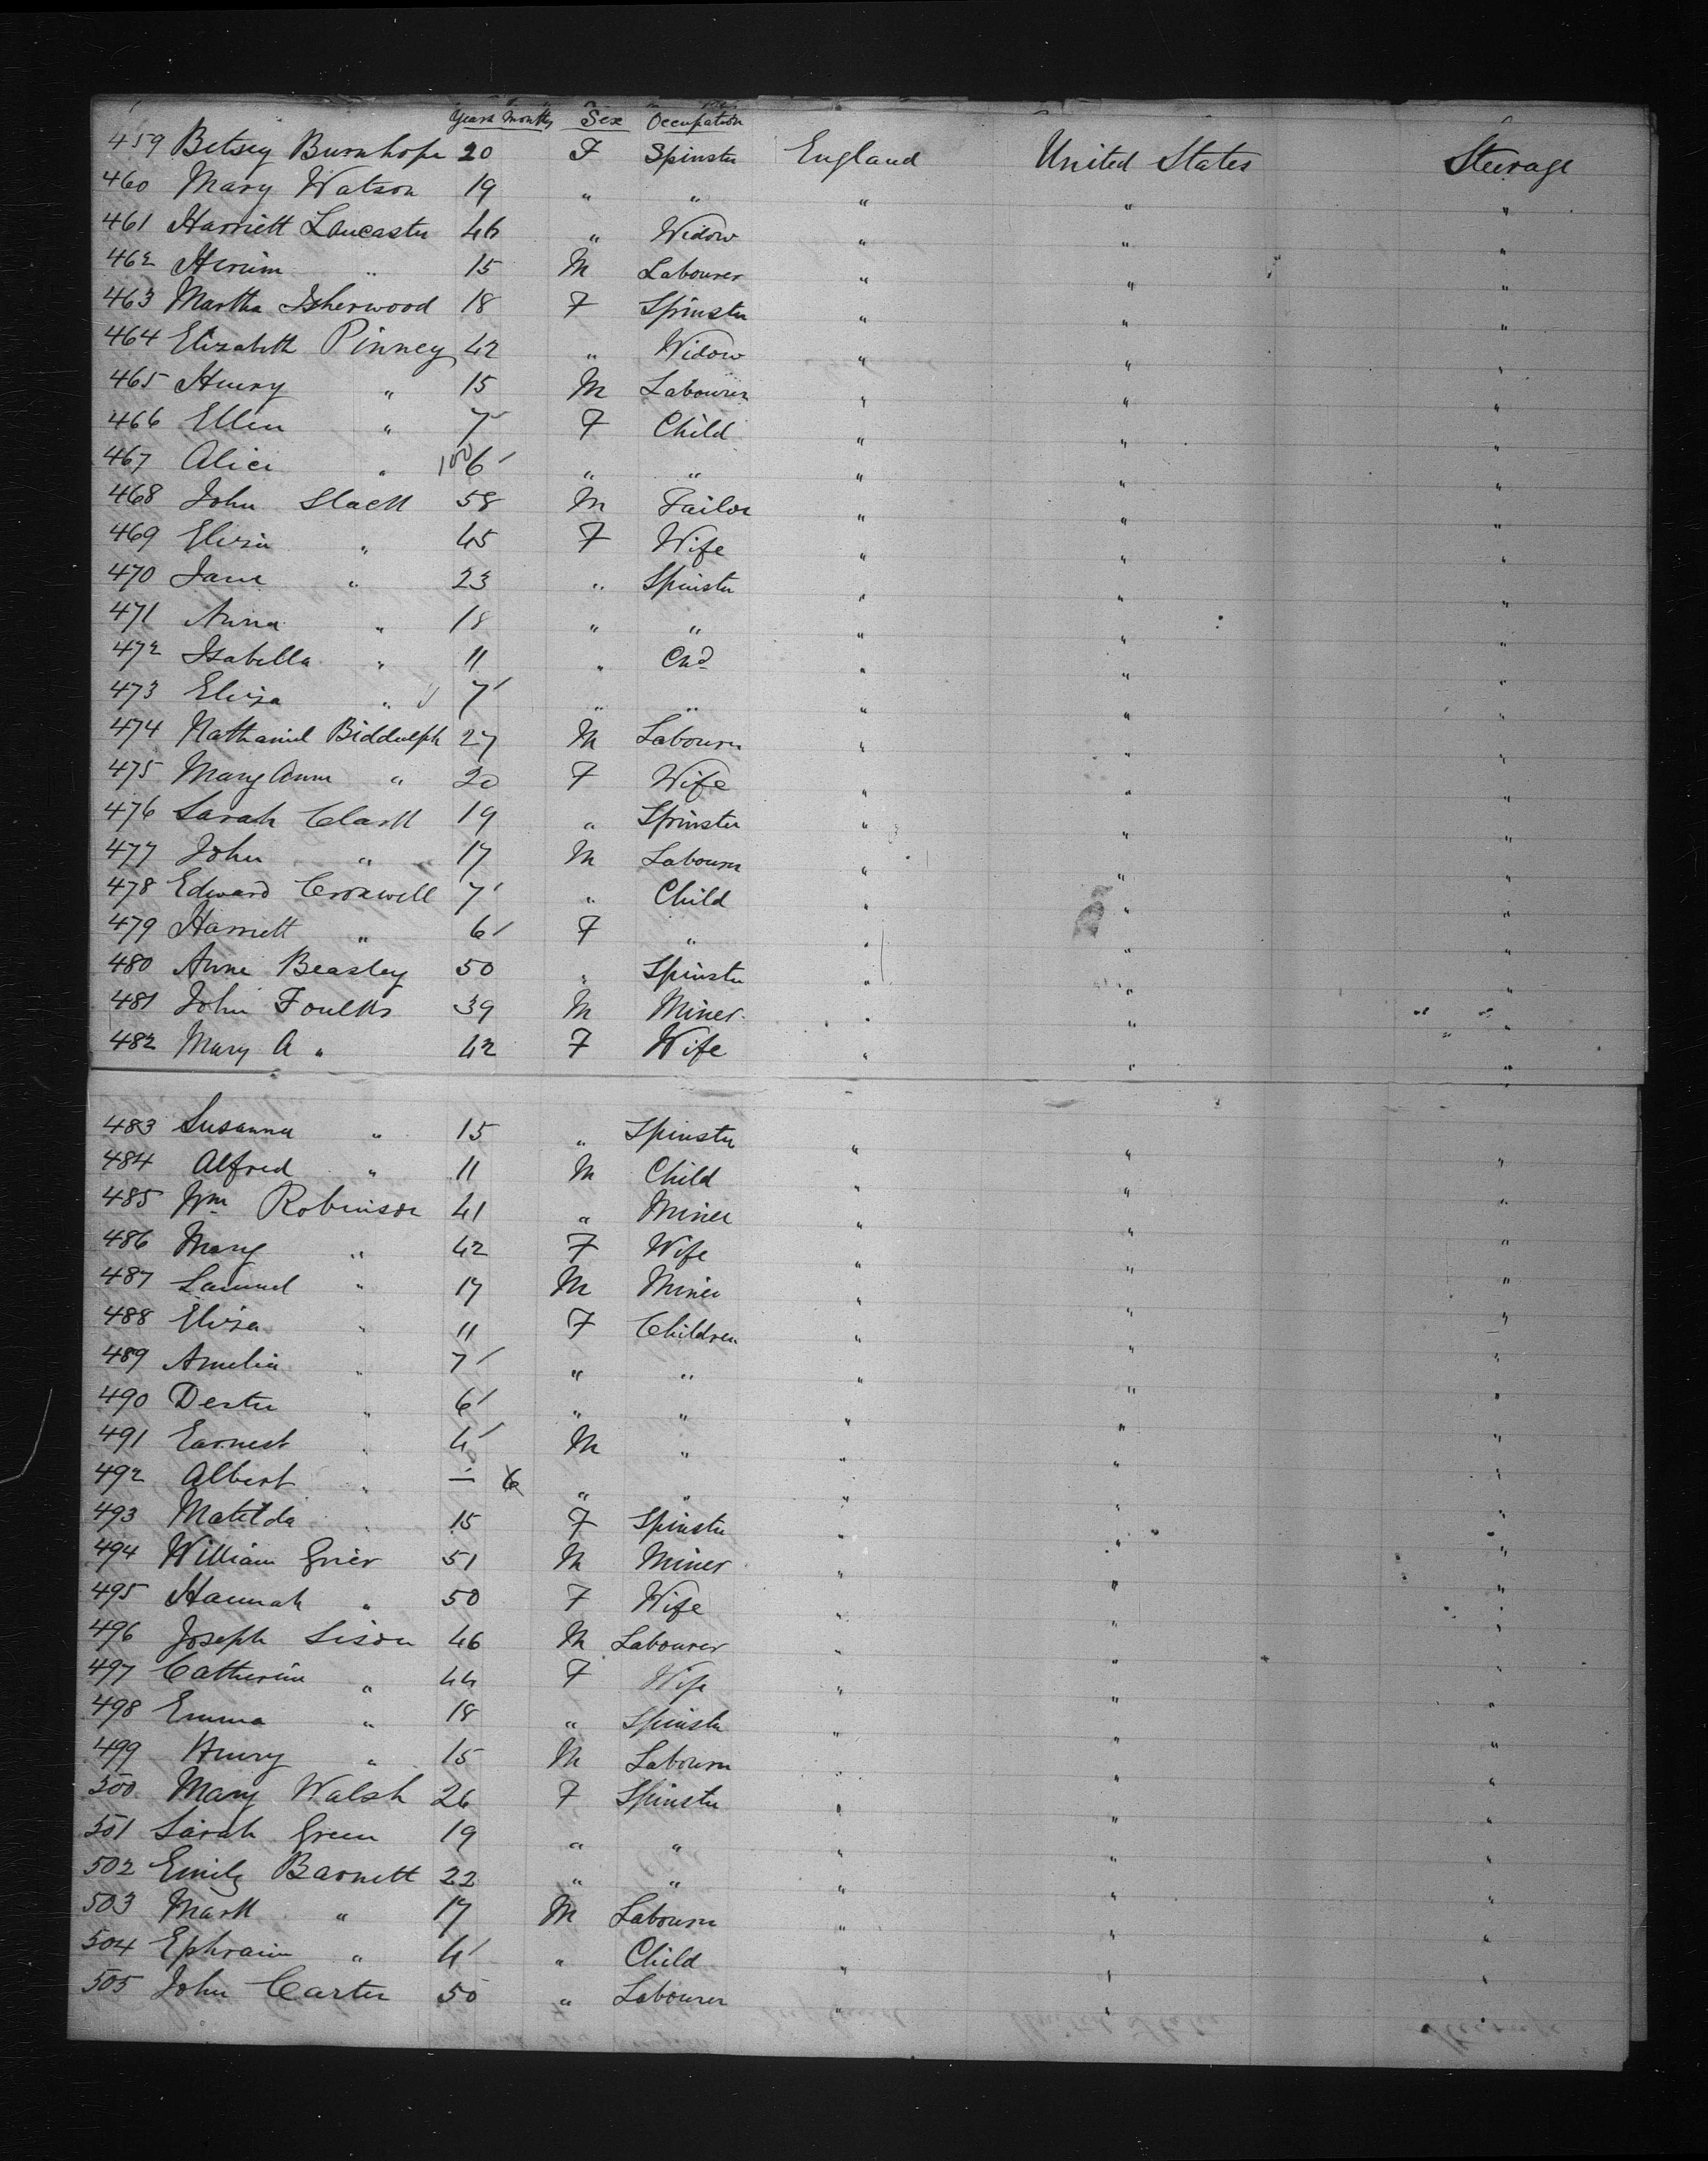 Years Months Sex Occupation
459 Betsey Burnhope 20 F Spinster England United States Steerage
460 Mary Watson 19 " " " " "
461 Harriett Lancaster 46 " Widow " " "
462 Hirim " 15 M Labourer " " "
463 Martha Isherwood 18 F Spinster " " "
464 Elizabeth Pinney 42 " Widow " " "
465 Henry " 15 M Labourer " " "
466 Ellen " 7 F Child " " "
467 Alice " 6 " " " " "
468 John Slack 58 M Tailor " " "
469 Eliza " 45 F Wife " " "
470 Jane " 23 " Spinster " " "
471 Anna " 18 " " " " "
472 Isabella " 11 " Chd " " "
473 Eliza " 7 " " " " "
474 Nathaniel Biddulph 27 M Labourer " " "
475 Mary Ann " 20 F Wife " " "
476 Sarah Clark 19 " Spinster " " "
477 John " 17 M Labourer " " "
478 Edward Croxwell 7 " Child " " "
479 Harriett " 6 F " " " "
480 Anne Beasley 50 " Spinster " " "
481 John Foulks 39 M Miner " " "
482 Mary A " 42 F Wife " " "
483 Susanna " 15 " Spinster " " "
484 Alfred " 11 M Child " " "
485 Wm Robinson 41 " Miner " " "
486 Mary " 42 F Wife " " "
487 Samuel " 17 M Miner " " "
488 Eliza " 11 F Children " " "
489 Amelia " 7 " " " " "
490 Dester " 6 " " " " "
491 Earnest " 4 M " " " "
492 Albert " — 6 " " " " "
493 Matilda " 15 F Spinster " " "
494 William Grier 51 M Miner " " "
495 Hannah " 50 F Wife " " "
496 Joseph Sison 46 M Labourer " " "
497 Catherine " 44 F Wife " " "
498 Emma " 18 " Spinster " " "
499 Henry " 15 M Labourer " " "
500 Mary Walsh 26 F Spinster " " "
501 Sarah Green 19 " " " " "
502 Emily Barnett 22 " " " " "
503 Mark " 17 M Labourer " " "
504 Ephraim " 4 " Child " " "
505 John Carter 50 " Labourer " " "